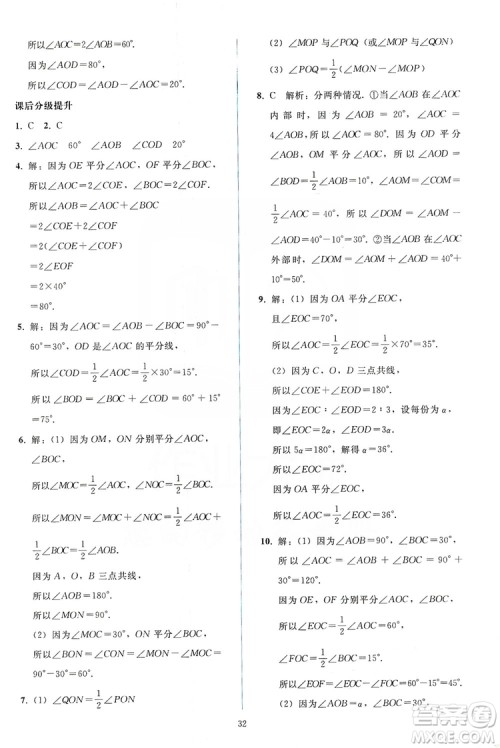 所以∠AOC=2∠AOB=60°.
因为∠AOD=80°,
所以∠COD=∠AOD-∠AOC=20°.
课后分级提升
1. C 2. C
3. ∠AOC 60° ∠COD 20°
4. 解：因为 OE 平分∠AOC，OF 平分∠BOC，
所以∠AOC=2∠COE，∠BOC=2∠COF，
所以∠AOB=∠AOC+∠BOC
=2∠COE+2∠COF
=2(∠COE+∠COF)
=2∠EOF
=2×40°
=80°.
5. 解：因为∠AOC=∠AOB-∠BOC=90°-
60°=30°，OD 是∠AOC 的平分线，
所以∠COD=1/2∠AOC=1/2×30°=15°，
所以∠BOD=∠COD+∠BOC=15°+60°=
75°.
6. 解：(1) 因为 OM，ON 分别平分∠AOC，
∠BOC，
所以∠MOC=1/2∠AOC，∠NOC=1/2∠BOC，
所以∠MON=∠MOC+∠NOC=1/2∠AOC+
1/2∠BOC=1/2∠AOB.
因为 A，O，B 三点共线，
所以∠AOB=180°.
所以∠MON=90°.
(2) 因为∠MOC=30°，ON 平分∠BOC，
所以∠BON=∠NOC=∠MON-∠MOC=
90°-30°=60°.
7. (1) ∠QON=1/2∠PON
(2) ∠MOP 与∠POQ（或∠MOP 与∠QON）
(3) ∠POQ=1/2(∠MON-∠MOP)
8. C 解析：分两种情况. ①当∠AOB 在∠AOC
内部时，因为∠AOB=20°，∠AOC=
4∠AOB，所以∠AOC=80°. 所以∠AOD=
∠BOD=1/2∠AOB=10°，∠AOM=∠COM=
1/2∠AOC=40°. 所以∠DOM=∠AOM-
∠AOD=40°-10°=30°. ②当∠AOB 在∠AOC
外部时，∠DOM=∠AOM+∠AOD=40°+
10°=50°.
9. 解：(1) 因为 OA 平分∠EOC，
且∠EOC=70°，
所以∠AOC=1/2∠EOC=1/2×70°=35°.
(2) 因为 C，O，D 三点共线，
所以∠EOC+∠EOD=180°.
因为∠EOC∶∠EOD=2∶3，设每份为 α，
则∠EOC=2α，∠EOD=3α.
所以 5α=180°，解得 α=36°，
所以∠EOC=2α=72°.
因为 OA 平分∠EOC，
所以∠AOC=1/2∠EOC=36°.
10. 解：(1) 因为∠AOB=90°，∠BOC=30°，
所以∠AOC=∠AOB+∠BOC=90°+
30°=120°.
因为 OE，OF 分别平分∠AOC，∠BOC，
所以∠EOC=1/2∠AOC=60°，
∠FOC=1/2∠BOC=15°，
所以∠EOF=∠EOC-∠FOC=45°.
(2) 因为∠AOB=α，∠BOC=30°，
32